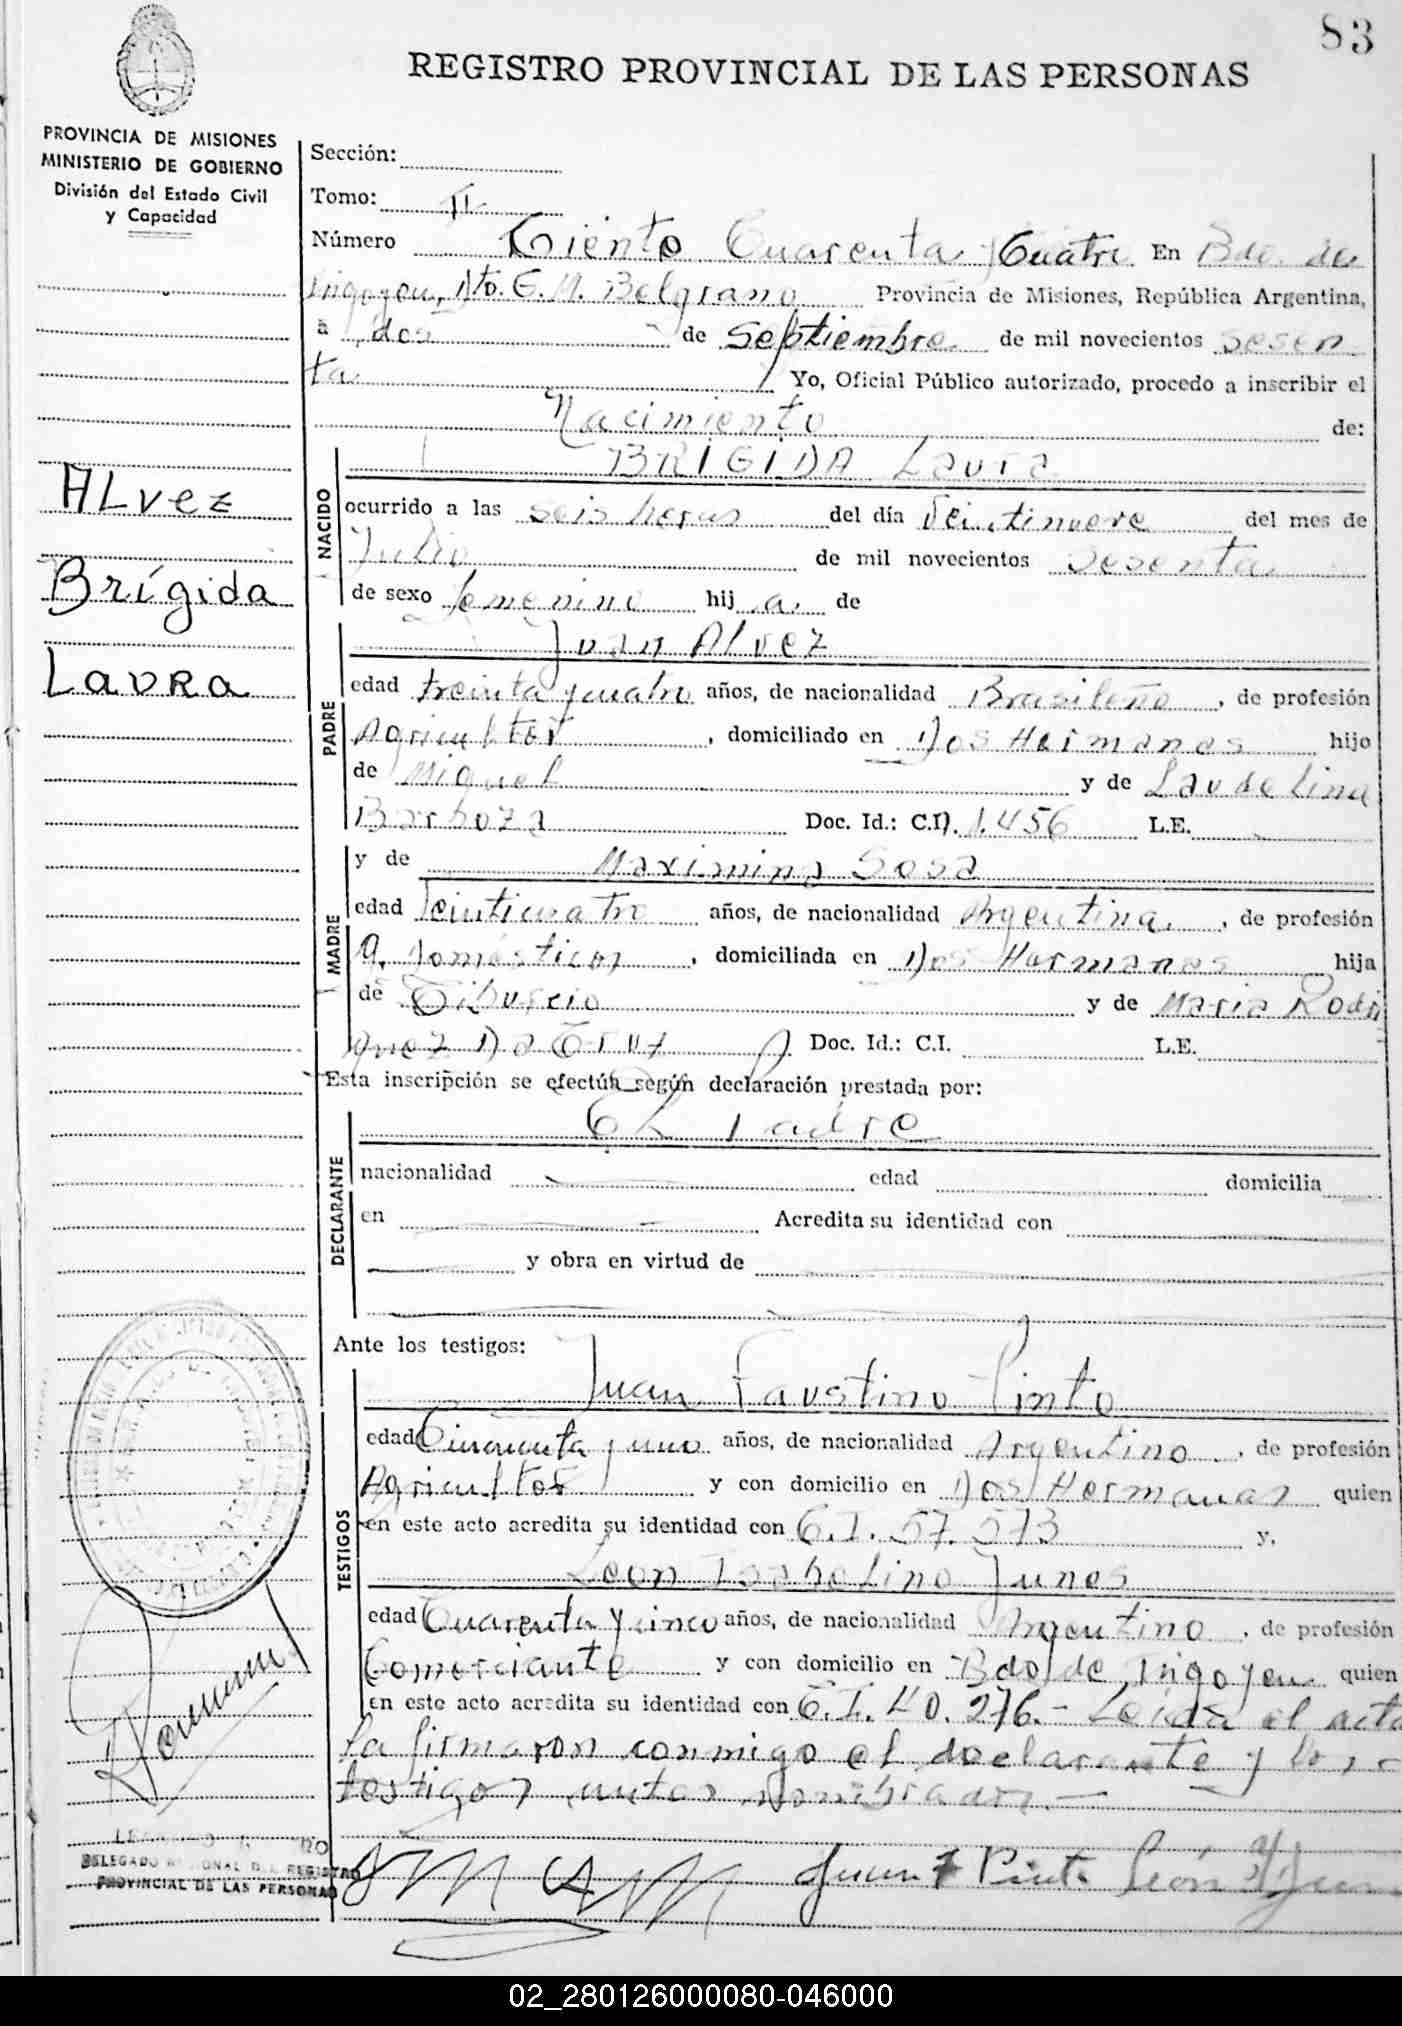 83
REGISTRO PROVINCIAL DE LAS PERSONAS
PROVINCIA DE MISIONES
MINISTERIO DE GOBIERNO
División del Estado Civil
y Capacidad
Sección:
Tomo: II
Número Ciento Cuarenta y Cuatro En Bdo. de
Irigoyen, Dto. G. M. Belgrano Provincia de Misiones, República Argentina,
a dos de Septiembre de mil novecientos sesen
ta Yo, Oficial Público autorizado, procedo a inscribir el
Nacimiento de:
NACIDO
BRIGIDA Laura
ALvez
Brígida
Laura
ocurrido a las seis horas del día Veintinueve del mes de
Julio de mil novecientos Sesenta
de sexo femenino hij a de
PADRE
Juan Alvez
edad treinta y cuatro años, de nacionalidad Brasileño, de profesión
Agricultor, domiciliado en Dos Hermanas hijo
de Miguel y de Laudelina
Barboza Doc. Id.: C.I. 1.456 L.E.
MADRE
y de Maximina Sosa
edad Veinticuatro años, de nacionalidad Argentina, de profesión
Q. Domésticos, domiciliada en Dos Hermanas hija
de Tiburcio y de Maria Rodri
guez Da Cruz Doc. Id.: C.I. L.E.
Esta inscripción se efectúa según declaración prestada por:
DECLARANTE
El Padre
nacionalidad edad domicilia
en Acredita su identidad con
y obra en virtud de
Ante los testigos:
TESTIGOS
Juan Faustino Pinto
edad Cincuenta y uno años, de nacionalidad Argentino, de profesión
Agricultor y con domicilio en Dos Hermanas quien
en este acto acredita su identidad con C.I. 57.573 y,
Leon Isabelino Junes
edad Cuarenta y cinco años, de nacionalidad Argentino, de profesión
Comerciante y con domicilio en Bdo. de Irigoyen quien
en este acto acredita su identidad con C.I. 40.276.- Leída el acta
la firmaron conmigo el declarante y los
testigos antes nombrados.-
Juan F Pinto León
DELEGADO REGIONAL DEL REGISTRO
PROVINCIAL DE LAS PERSONAS
02_280126000080-046000